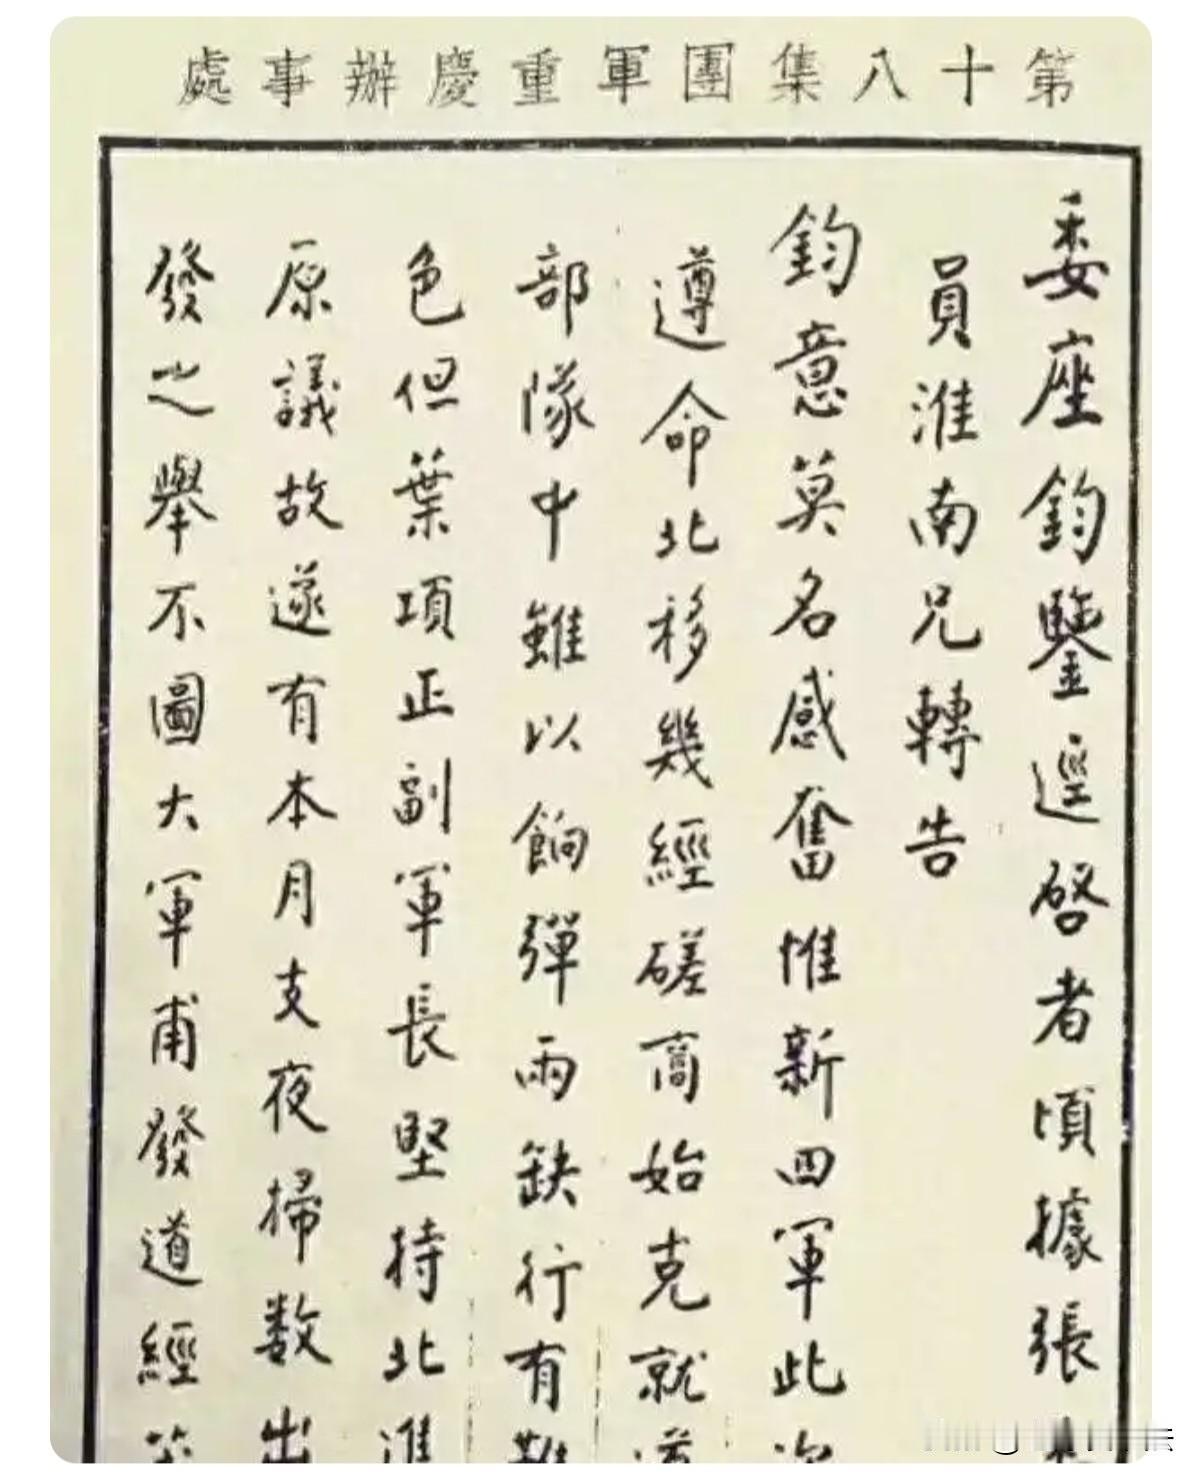 第十八集團軍重慶辦事處
委座鈞鑒逕啓者頃據張
員淮南兄轉告
鈞意莫名感奮惟新四軍此次
遵命北移幾經磋商始克就道
部隊中雖以餉彈兩缺行有難
色但葉項正副軍長堅持北進
原議故遂有本月支夜掃数出
發之舉不圖大軍甫發道經